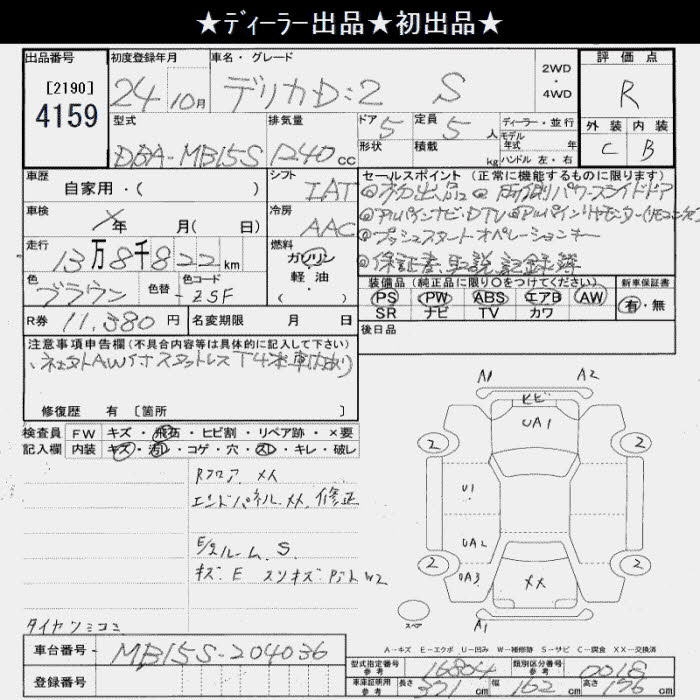 ★ディーラー出品★初出品★
出品番号 初度登録年月 車名・グレード 2WD・4WD 評価点
[2190]
4159 24 10月 デリカD:2 S R
型式 排気量 ドア 定員 ディーラー・並行 外装 内装
DBA-MB15S 1240cc 5 5人 モデル年式 年式 C B
形状 積載 kg ハンドル 左・右
車歴 自家用・( ) シフト IAT セールスポイント (正常に機能するものに限ります)
◎初出品◎両側パワースライドドア
車検 年 月( 日) 冷房 AAC ◎アルパインナビ・DTV◎アルパインリヤモニター
◎プッシュスタートオペレーションキー
走行 13万8千822km 燃料 ガソリン 軽・油 ( )
◎保証書、取説、記録簿
色 ブラウン 色替 色コード ZSF
装備品 (純正品に限り○をつけてください) 新車保証書
PS PW ABS エアB AW 有・無
SR ナビ TV カワ
R券 11,380円 名変期限 月 日 後日品
注意事項申告欄 (不具合内容等は具体的に記入して下さい)
AW付スタッドレスT4本車内あり
修復歴 有 [箇所 ]
検査員 FW キズ・飛石・ヒビ割・リペア跡・×要
記入欄 内装 キズ・汚レ・コゲ・穴・スレ・キレ・破レ
Rフロア XX
エンドパネル XX 修正
E/gルーム S
キズ E スリキズ W2
タイヤ
A1 A2
ヒビ
UA1
2 2
U1
UA2
UA3
2 2
XX
スペア A1
A-キズ E-エクボ U-凹み W-補修跡 S-サビ C-腐食 XX-交換済
車台番号 MB15S-204036
型式指定番号 参考 16804 類別区分番号 参考 0018
登録番号
車庫証明用 参考 長さ 371cm 幅 162cm 高さ 176cm